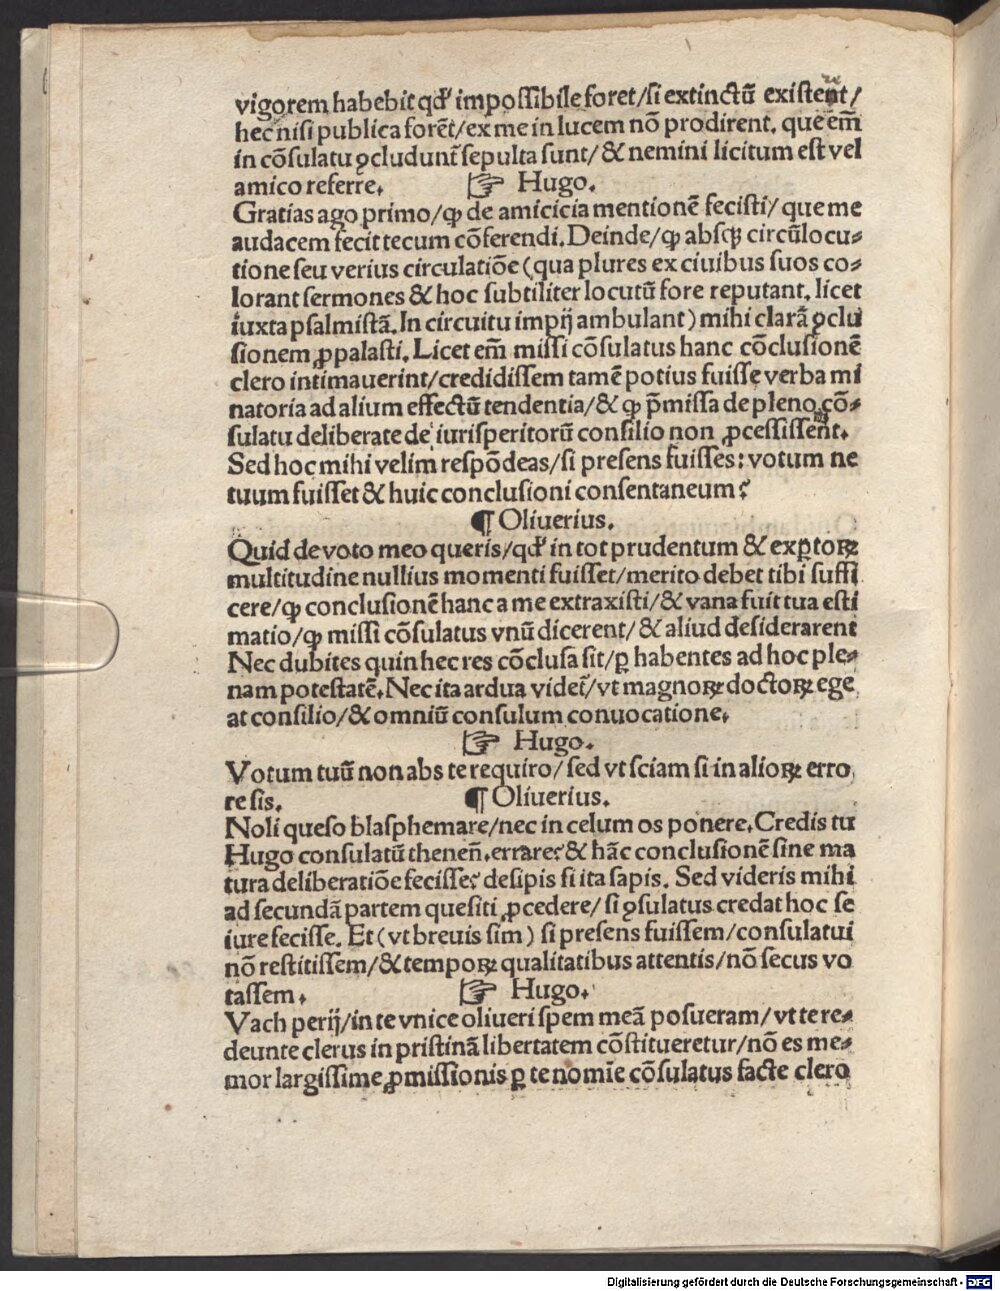 vigorem habebit qđ impoſſibile foret/ſi extinctū exiſtent/
hec niſi publica forēt/ex me in lucem nō prodirent. que em̄
in cōſulatu ꝯcludunt̄ ſepulta ſunt/ & nemini licitum eſt vel
amico referre. ☞ Hugo.
Gratias ago primo/ꝙ de amicicia mentionē feciſti/ que me
audacem fecit tecum cōferendi. Deinde/ꝙ abſqꝫ circūlocu⸗
tione ſeu verius circulatiōe (qua plures ex ciuibus ſuos co⸗
lorant ſermones & hoc ſubtiliter locutū fore reputant. licet
iuxta pſalmiſtā. In circuitu impij ambulant) mihi clarā ꝯclu
ſionem ꝓpalaſti. Licet em̄ miſſi cōſulatus hanc cōcluſionē
clero intimauerint/credidiſſem tamē potius fuiſſe verba mi
natoria ad alium effectū tendentia/& ꝙ p̄miſſa de pleno cō⸗
ſulatu deliberate de iuriſperitorū conſilio non ꝓceſſiſſent.
Sed hoc mihi velim reſpōdeas/ſi preſens fuiſſes: votum ne
tuum fuiſſet & huic concluſioni conſentaneum?
¶ Oliuerius.
Quid de voto meo queris/qđ in tot prudentum & exꝑtoꝝ
multitudine nullius momenti fuiſſet/merito debet tibi ſuffi
cere/ꝙ concluſionē hanc a me extraxiſti/& vana fuit tua eſti
matio/ꝙ miſſi cōſulatus vnū dicerent/ & aliud deſiderarent
Nec dubites quin hec res cōcluſa ſit/ꝑ habentes ad hoc ple⸗
nam poteſtatē. Nec ita ardua videt̄/vt magnoꝝ doctoꝝ ege
at conſilio/& omniū conſulum conuocatione.
☞ Hugo.
Votum tuū non abs te requiro/ ſed vt ſciam ſi in alioꝝ erro
re ſis. ¶ Oliuerius.
Noli queſo blaſphemare/nec in celum os ponere. Credis tu
Hugo conſulatū thenen̄. errare? & hāc concluſionē ſine ma
tura deliberatiōe feciſſe? deſipis ſi ita ſapis. Sed videris mihi
ad ſecundā partem queſiti ꝓcedere/ ſi ꝯſulatus credat hoc ſe
iure feciſſe. Et (vt breuis ſim) ſi preſens fuiſſem/conſulatui
nō reſtitiſſem/& tempoꝝ qualitatibus attentis/nō ſecus vo
taſſem. ☞ Hugo.
Vach perij/in te vnice oliueri ſpem meā poſueram/ vt te re⸗
deunte clerus in priſtinā libertatem cōſtitueretur/nō es me⸗
mor largiſſime ꝓmiſſionis ꝑ te nomīe cōſulatus facte clero
Digitalisierung gefördert durch die Deutsche Forschungsgemeinschaft - DFG